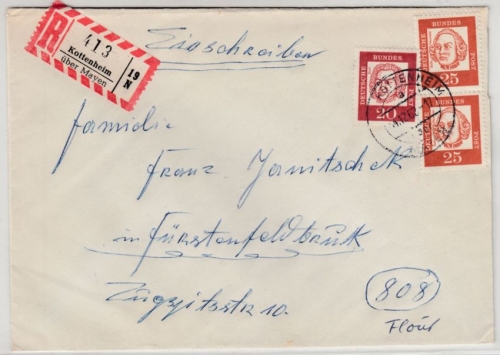 R
413
Kottenheim
über Mayen
19
N
Einschreiben
DEUTSCHE BUNDESPOST
20
DEUTSCHE BUNDESPOST
25
DEUTSCHE BUNDESPOST
25
KOTTENHEIM
Familie
Franz Janitschek
in Fürstenfeldbruck
Zugspitzstr. 10
808